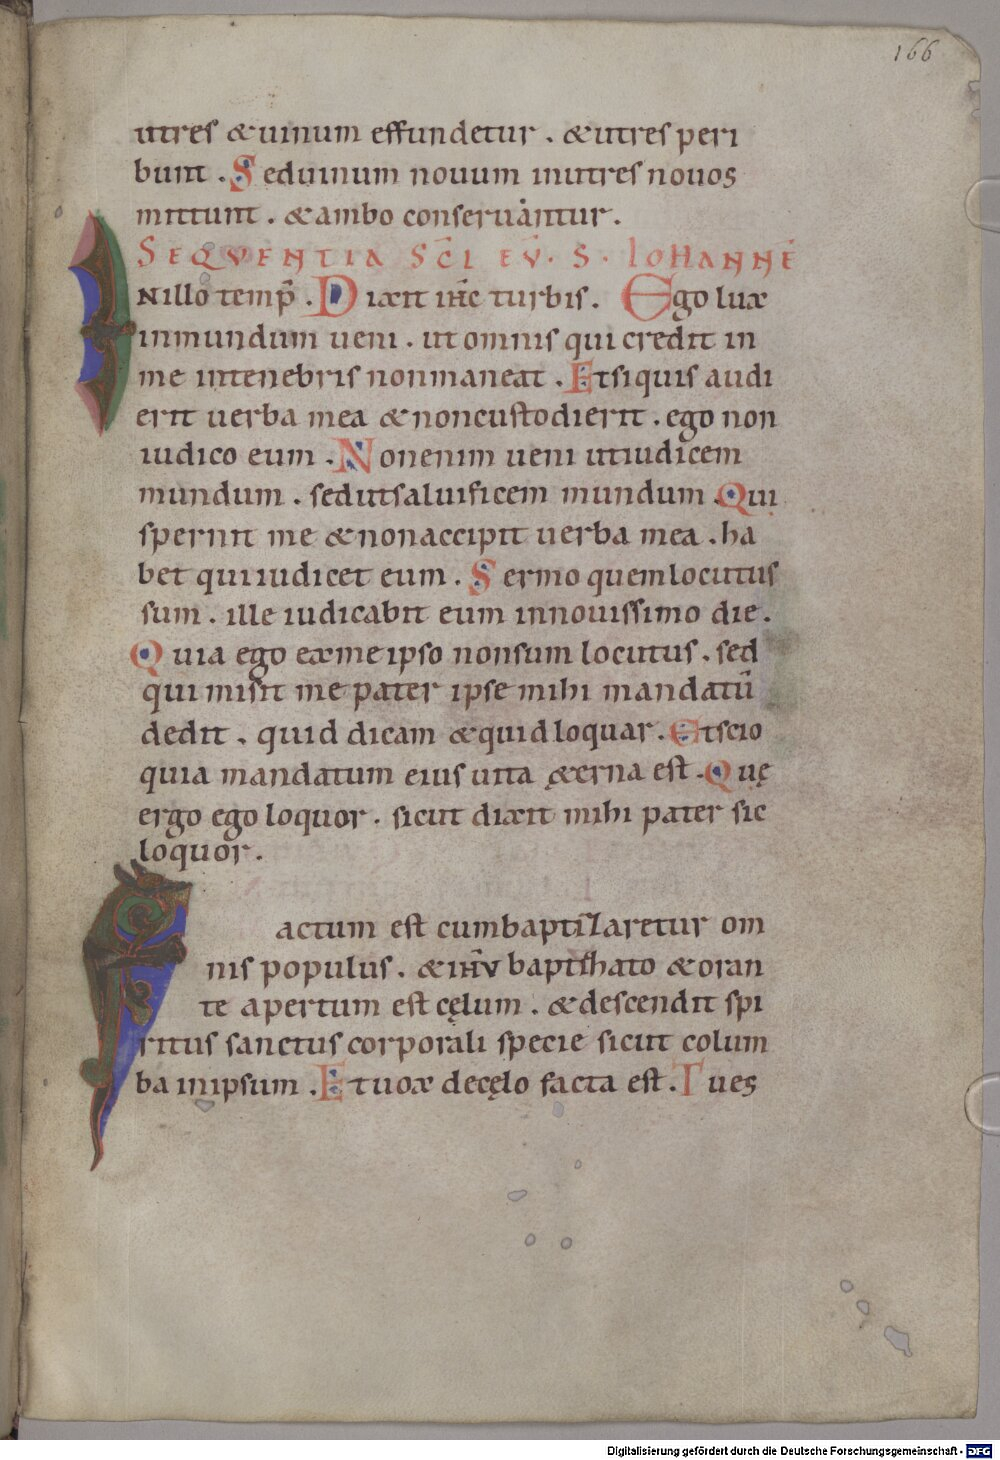 166
utres &uinum effundetur . &utres peri
bunt . Seduinum nouum inutres nouos
mittunt . &ambo conseruantur .
SEQVENTIA SC̄I EV̄. S. IOHANNĒ
INillo temp̄ . Dixit ihc̄ turbis . Ego lux
inmundum ueni . utomnis qui credit in
me intenebris nonmaneat . Etsiquis audi
erit uerba mea &noncustodierit . ego non
iudico eum . Nonenim ueni utiudicem
mundum . sedutsaluificem mundum . Qui
spernit me &nonaccipit uerba mea . ha
bet quiiudicet eum . Sermo quemlocutus
sum . ille iudicabit eum innouissimo die .
Quia ego exmeipso nonsum locutus . sed
qui misit me pater ipse mihi mandatū
dedit . quid dicam &quidloquar . Etscio
quia mandatum eius uita &erna est . Quę
ergo ego loquor . sicut dixit mihi pater sic
loquor .
Factum est cumbaptizaretur om
nis populus . &ihv̄ baptizato &oran
te apertum est cęlum . &descendit spi
ritus sanctus corporali specie sicut colum
ba inipsum . Etuox decęlo facta est . Tues
Digitalisierung gefördert durch die Deutsche Forschungsgemeinschaft - DFG